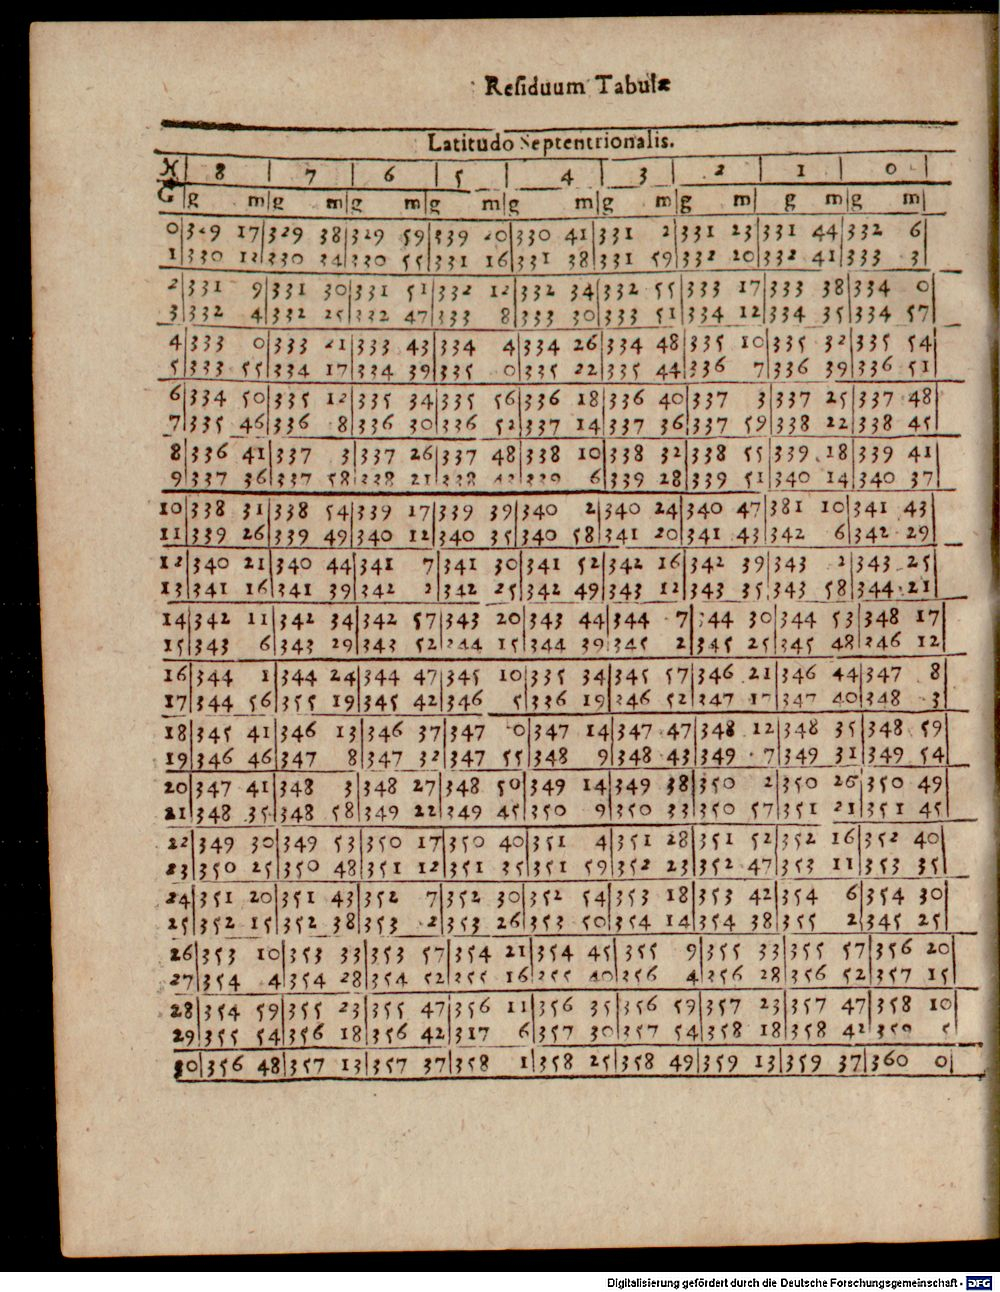 Reſiduum Tabulæ
Latitudo Septentrionalis.
♓ 8 7 6 5 4 3 2 1 0
G g m g m g m g m g m g m g m g m g m
0 329 17 329 38 329 59 339 20 330 41 331 2 331 23 331 44 332 6
1 330 12 330 34 330 55 331 16 331 38 331 59 332 20 332 41 333 3
2 331 9 331 30 331 51 332 12 332 34 332 55 333 17 333 38 334 0
3 332 4 332 25 332 47 333 8 333 30 333 51 334 12 334 35 334 57
4 333 0 333 21 333 43 334 4 334 26 334 48 335 10 335 32 335 54
5 333 55 334 17 334 39 335 0 335 22 335 44 336 7 336 39 336 51
6 334 50 335 12 335 34 335 56 336 18 336 40 337 3 337 25 337 48
7 335 46 336 8 336 30 336 52 337 14 337 36 337 59 338 22 338 45
8 336 41 337 3 337 26 337 48 338 10 338 32 338 55 339 18 339 41
9 337 36 337 58 338 21 338 43 339 6 339 28 339 51 340 14 340 37
10 338 31 338 54 339 17 339 39 340 2 340 24 340 47 381 10 341 43
11 339 26 339 49 340 12 340 35 340 58 341 20 341 43 342 6 342 29
12 340 21 340 44 341 7 341 30 341 52 342 16 342 39 343 2 343 25
13 341 16 341 39 342 2 342 25 342 49 343 12 343 35 343 58 344 21
14 342 11 342 34 342 57 343 20 343 44 344 7 344 30 344 53 348 17
15 343 6 343 29 343 52 344 15 344 39 345 2 345 25 345 48 346 12
16 344 1 344 24 344 47 345 10 335 34 345 57 346 21 346 44 347 8
17 344 56 355 19 345 42 346 5 336 19 346 52 347 17 347 40 348 3
18 345 41 346 13 346 37 347 0 347 14 347 47 348 12 348 35 348 59
19 346 46 347 8 347 32 347 55 348 9 348 43 349 7 349 31 349 54
20 347 41 348 3 348 27 348 50 349 14 349 38 350 2 350 26 350 49
21 348 35 348 58 349 22 349 45 350 9 350 33 350 57 351 21 351 45
22 349 30 349 53 350 17 350 40 351 4 351 28 351 52 352 16 352 40
23 350 25 350 48 351 12 351 35 351 59 352 23 352 47 353 11 353 35
24 351 20 351 43 352 7 352 30 352 54 353 18 353 42 354 6 354 30
25 352 15 352 38 353 2 353 26 353 50 354 14 354 38 355 2 345 25
26 353 10 353 33 353 57 354 21 354 45 355 9 355 33 355 57 356 20
27 354 4 354 28 354 52 355 16 355 40 356 4 356 28 356 52 357 15
28 354 59 355 23 355 47 356 11 356 35 356 59 357 23 357 47 358 10
29 355 54 356 18 356 42 317 6 357 30 357 54 358 18 358 42 359 5
30 356 48 357 13 357 37 358 1 358 25 358 49 359 13 359 37 360 0
Digitalisierung gefördert durch die Deutsche Forschungsgemeinschaft - DFG